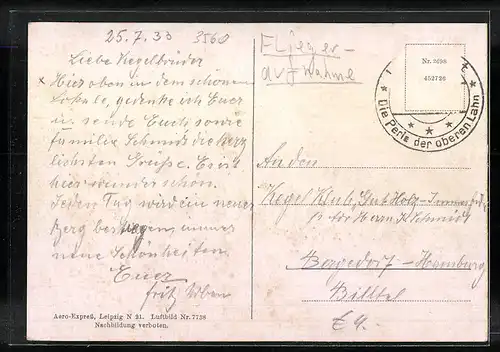 25.7.33 3560
Liebe Kegelbrüder
Hier oben in dem schönen
Lokale, gedenke ich Euer
u. sende Euch, sowie
Familie Schmidt die herz
lichsten Grüße. Es ist
hier wunder schön.
Jeden Tag wird ein neuer
Berg bestiegen, immer
neue Schönheiten.
Euer
Fritz
Aero-Expreß, Leipzig N 21. Luftbild Nr. 7738
Nachbildung verboten.
Flieger-
aufnahme
Nr. 2698
452726
* Die Perle der oberen Lahn *
* * *
An den
Kegel Klub, Gut Holz
Herrn Schmidt
Bergedorf-Hamburg